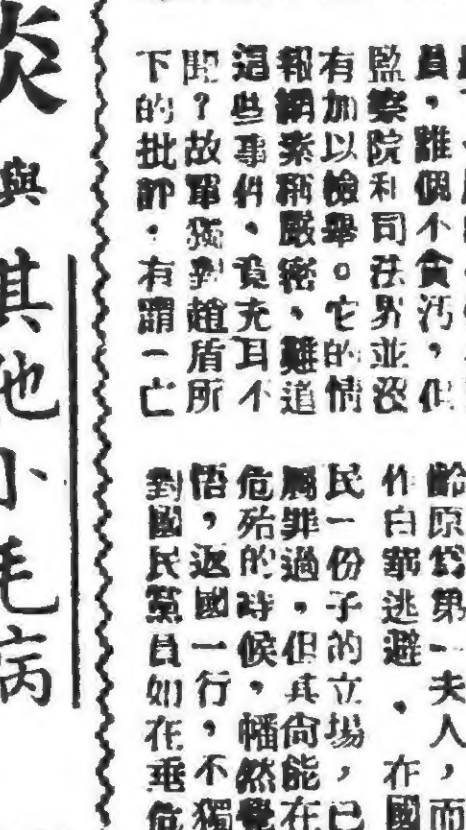 員，誰個不貪汚，但
監察院和司法界並沒
有加以檢舉。它的情
報網素稱嚴密，難道
這些事件，竟充耳不
聞？故單獨對趙盾所
下的批評，有謂一亡
齡原爲第一夫人，而
作白華逃避，在國
民一份子的立場，已
屬罪過，但其尙能在
危殆的時候，幡然覺
悟，返國一行，不獨
對國民黨員如在垂危
與其他小毛病